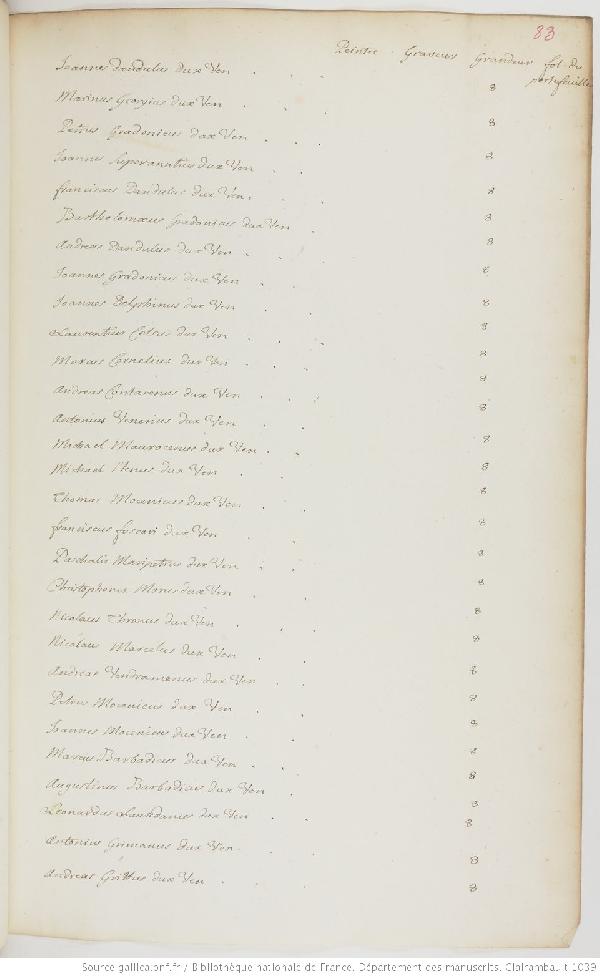 83
Peintre Graveurs Grandeur fol. du portefeuille
Joannes Dandulus dux Ven 8
Marinus Georgius dux Ven 8
Petrus Gradonicus dux Ven 8
Joannes Superantius dux Ven 8
franciscus Dandulus dux Ven. 8
Bartholomæus Gradonicus dux Ven 8
Andreas Dandulus dux Ven 8
Joannes Gradonicus dux Ven 8
Joannes Delphinus dux Ven 8
Laurentius Celsus dux Ven 8
Marcus Cornelius dux Ven 8
Andreas Contarenus dux Ven 8
Antonius Venerius dux Ven 8
Michael Maurocenus dux Ven 8
Michael Stenus dux Ven 8
Thomas Mocenicus dux Ven 8
franciscus foscari dux Ven 8
Paschalis Maripetrus dux Ven 8
Christophorus Morus dux Ven 8
Nicolaus Thronus dux Ven 8
Nicolaus Marcelus dux Ven 8
Andreas Vendramenus dux Ven 8
Petrus Mocenicus dux Ven 8
Joannes Mocenicus dux Ven 8
Marcus Barbadicus dux Ven 8
Augustinus Barbadicus dux Ven 8
Leonardus Lauredanus dux Ven 8
Antonius Grimanus dux Ven 8
Andreas Grittus dux Ven 8
Source gallica.bnf.fr / Bibliothèque nationale de France. Département des manuscrits. Clairambault 1039